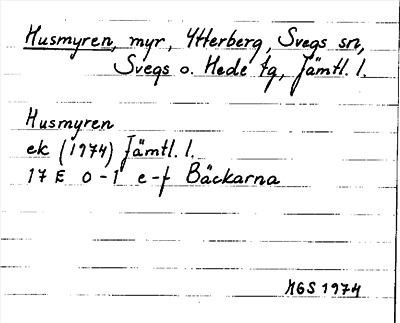 Husmyren, myr, Ytterberg, Svegs sn,
Svegs o. Hede tg, Jämtl. l.
Husmyren
ek (1974) Jämtl. l.
17 E 0-1 e-f Bäckarna
MGS 1974